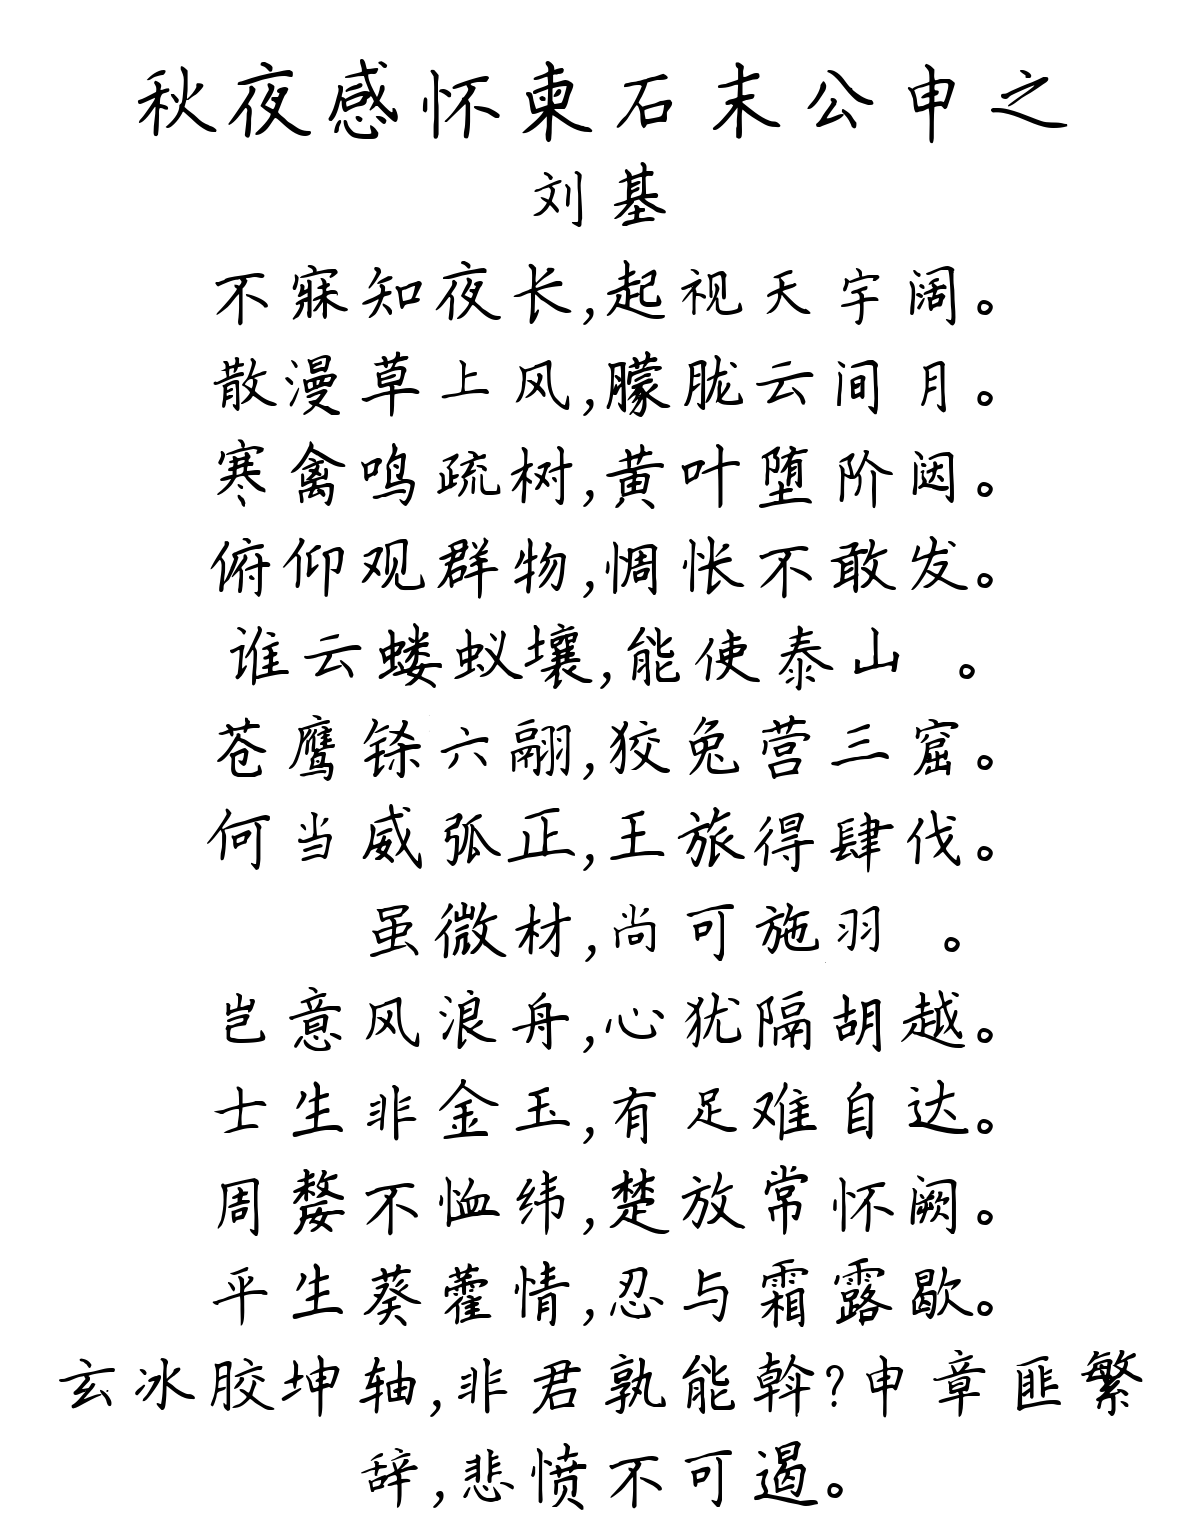 秋夜感怀柬石末公申之
刘基
不寐知夜长,起视天宇阔。
散漫草上风,朦胧云间月。
寒禽鸣疏树,黄叶堕阶闼。
俯仰观群物,惆怅不敢发。
谁云蝼蚁壤,能使泰山 。
苍鹰铩六翮,狡兔营三窟。
何当威弧正,王旅得肆伐。
虽微材,尚可施羽 。
岂意风浪舟,心犹隔胡越。
士生非金玉,有足难自达。
周嫠不恤纬,楚放常怀阙。
平生葵藿情,忍与霜露歇。
玄冰胶坤轴,非君孰能斡?申章匪繁
辞,悲愤不可遏。